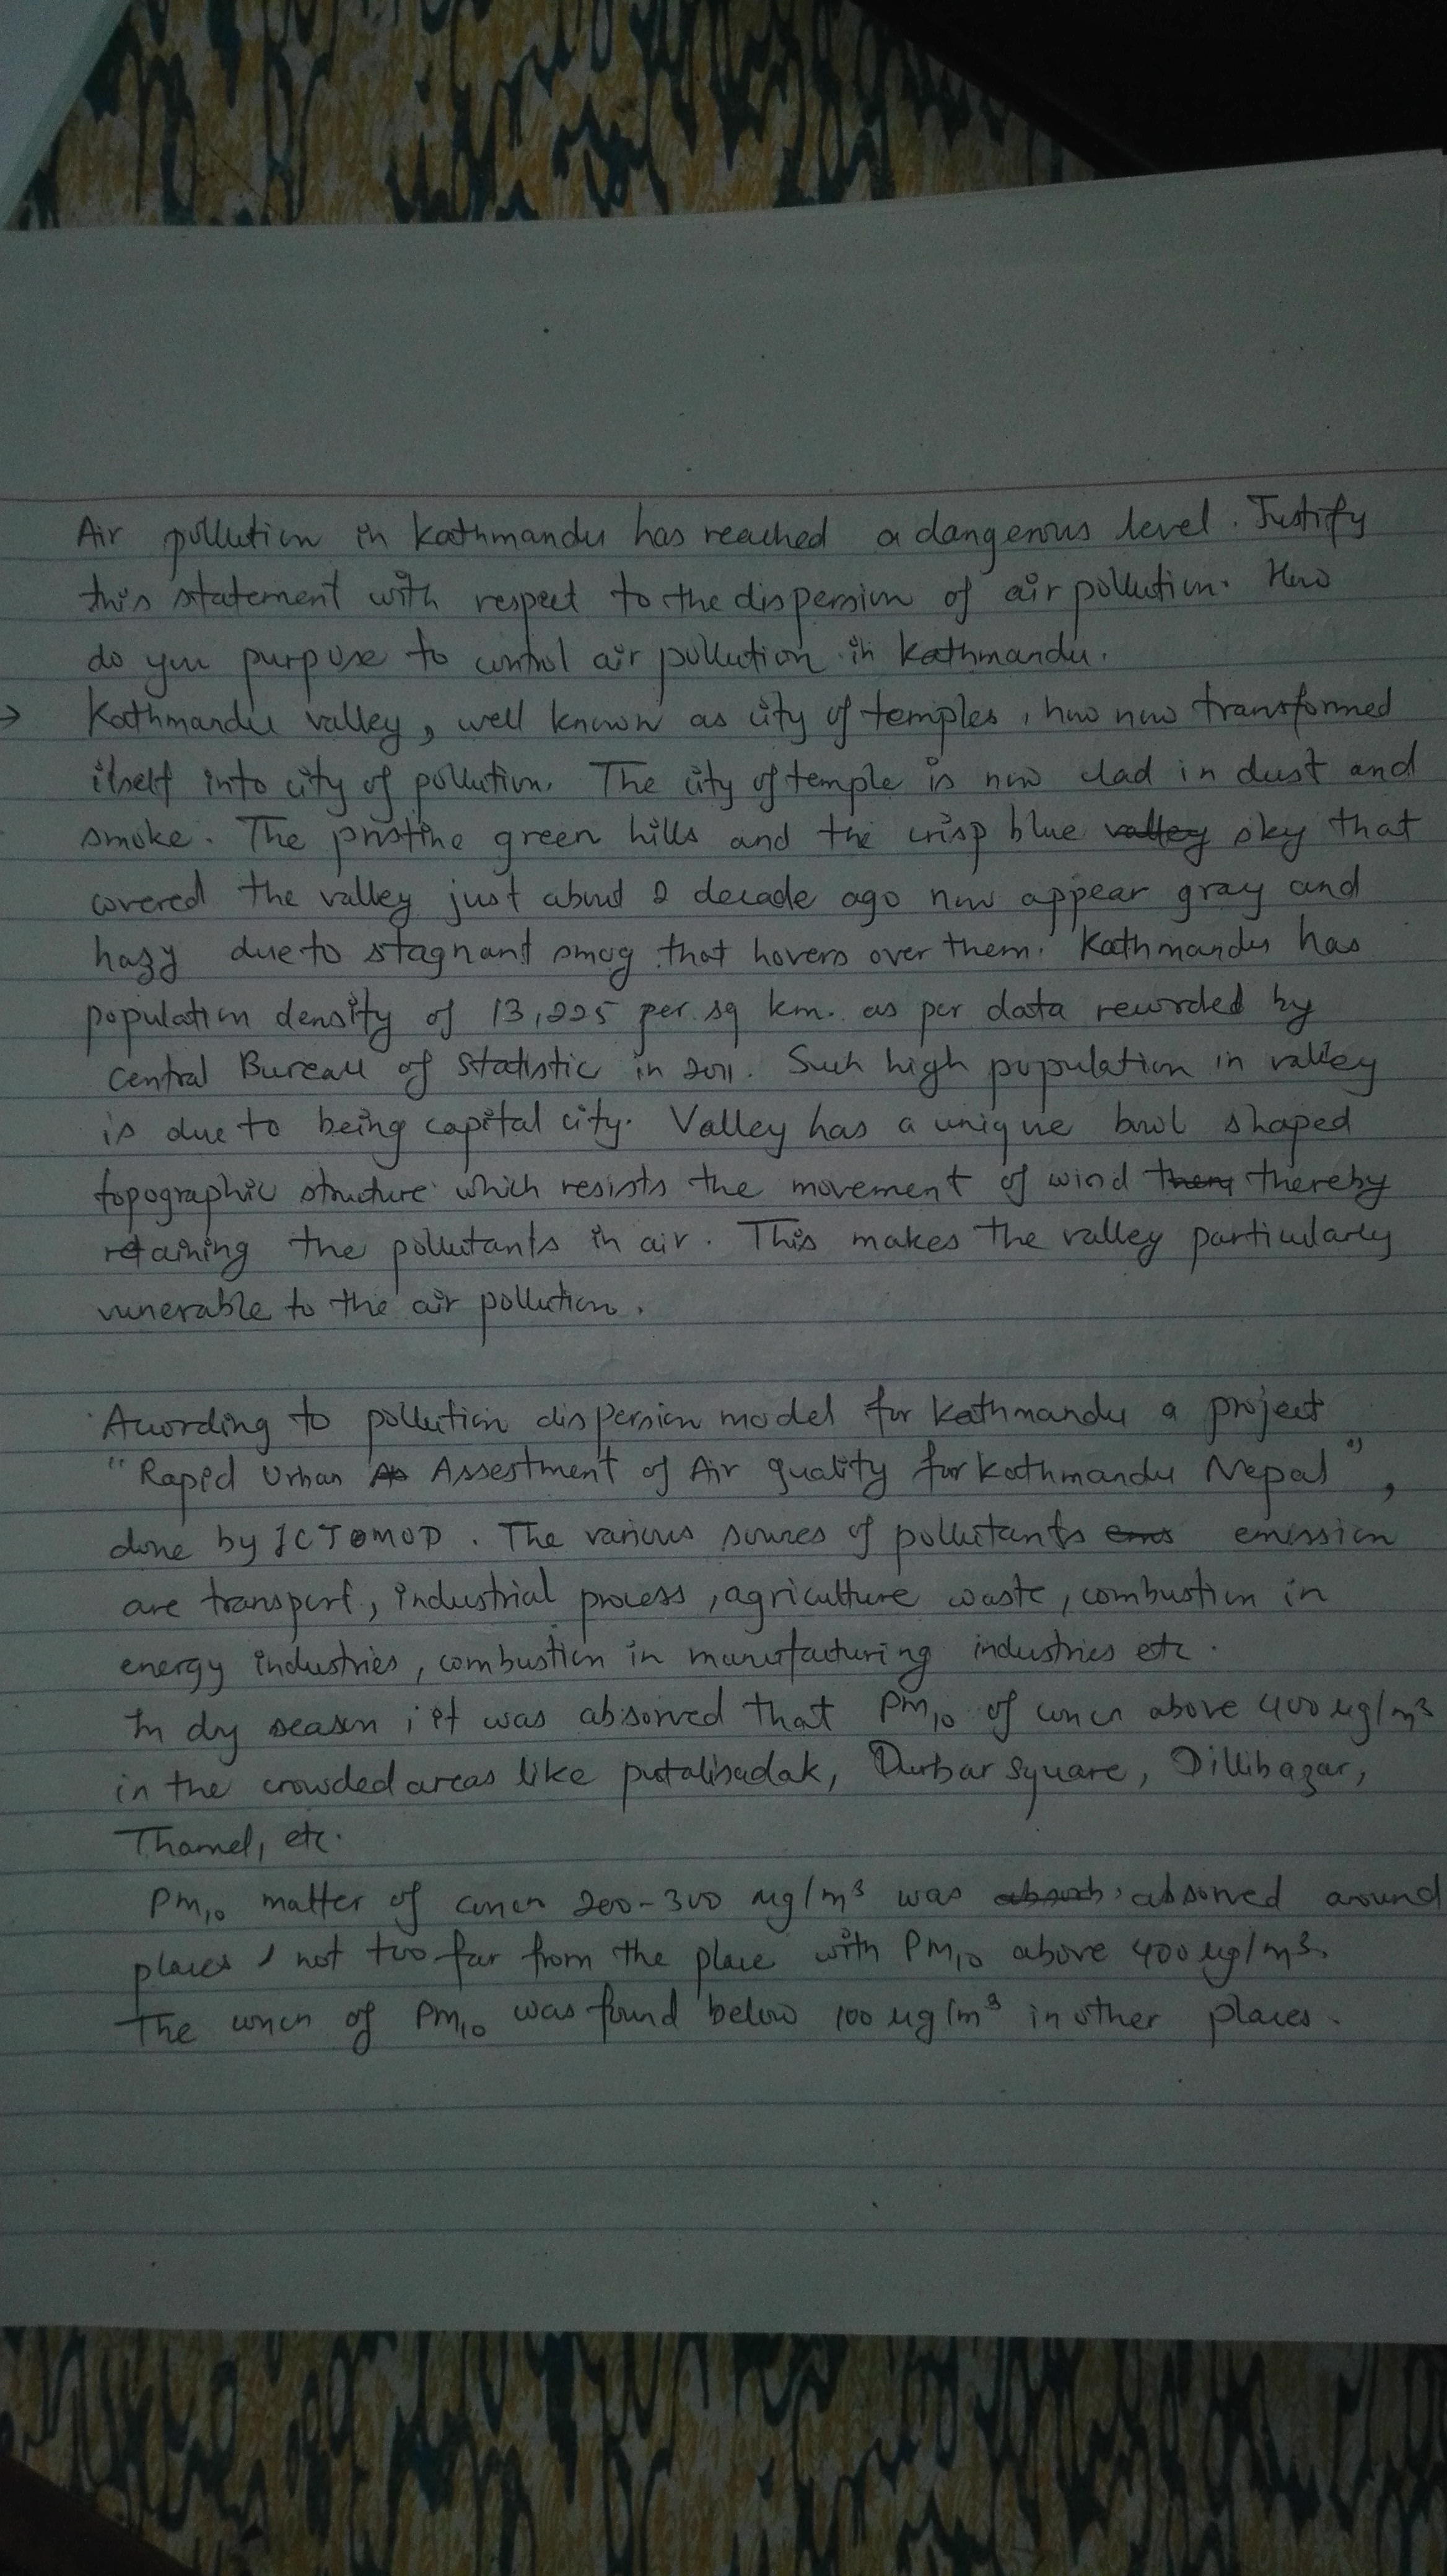 Air pollution in Kathmandu has reached a dangerous level. Justify
this statement with respect to the dispersion of air pollution. How
do you purpose to control air pollution in Kathmandu.
→ Kathmandu valley, well known as city of temples, has now transformed
itself into city of pollution. The city of temple is now clad in dust and
smoke. The pristine green hills and the crisp blue valley sky that
covered the valley just about 2 decade ago now appear gray and
hazy due to stagnant smog that hovers over them. Kathmandu has
population density of 13,225 per sq km. as per data recorded by
Central Bureau of Statistic in 2011. Such high population in valley
is due to being capital city. Valley has a unique bowl shaped
topographic structure which resists the movement of wind thereby
retaining the pollutants in air. This makes the valley particularly
vunerable to the air pollution.
According to pollution dispersion model for Kathmandu a project
"Rapid Urban Assestment of Air quality for Kathmandu Nepal",
done by ICTOMOD. The various sources of pollutants emission
are transport, industrial process, agriculture waste, combustion in
energy industries, combustion in manufacturing industries etc.
In dry season, it was absorved that PM10 of concn above 400 ug/m³
in the crowded areas like putalisadak, Durbar square, Dillibazar,
Thamel, etc.
PM10 matter of concn 200-300 ug/m³ was absorved around
places, not too far from the place with PM10 above 400 ug/m³.
The concn of PM10 was found below 100 ug/m³ in other places.